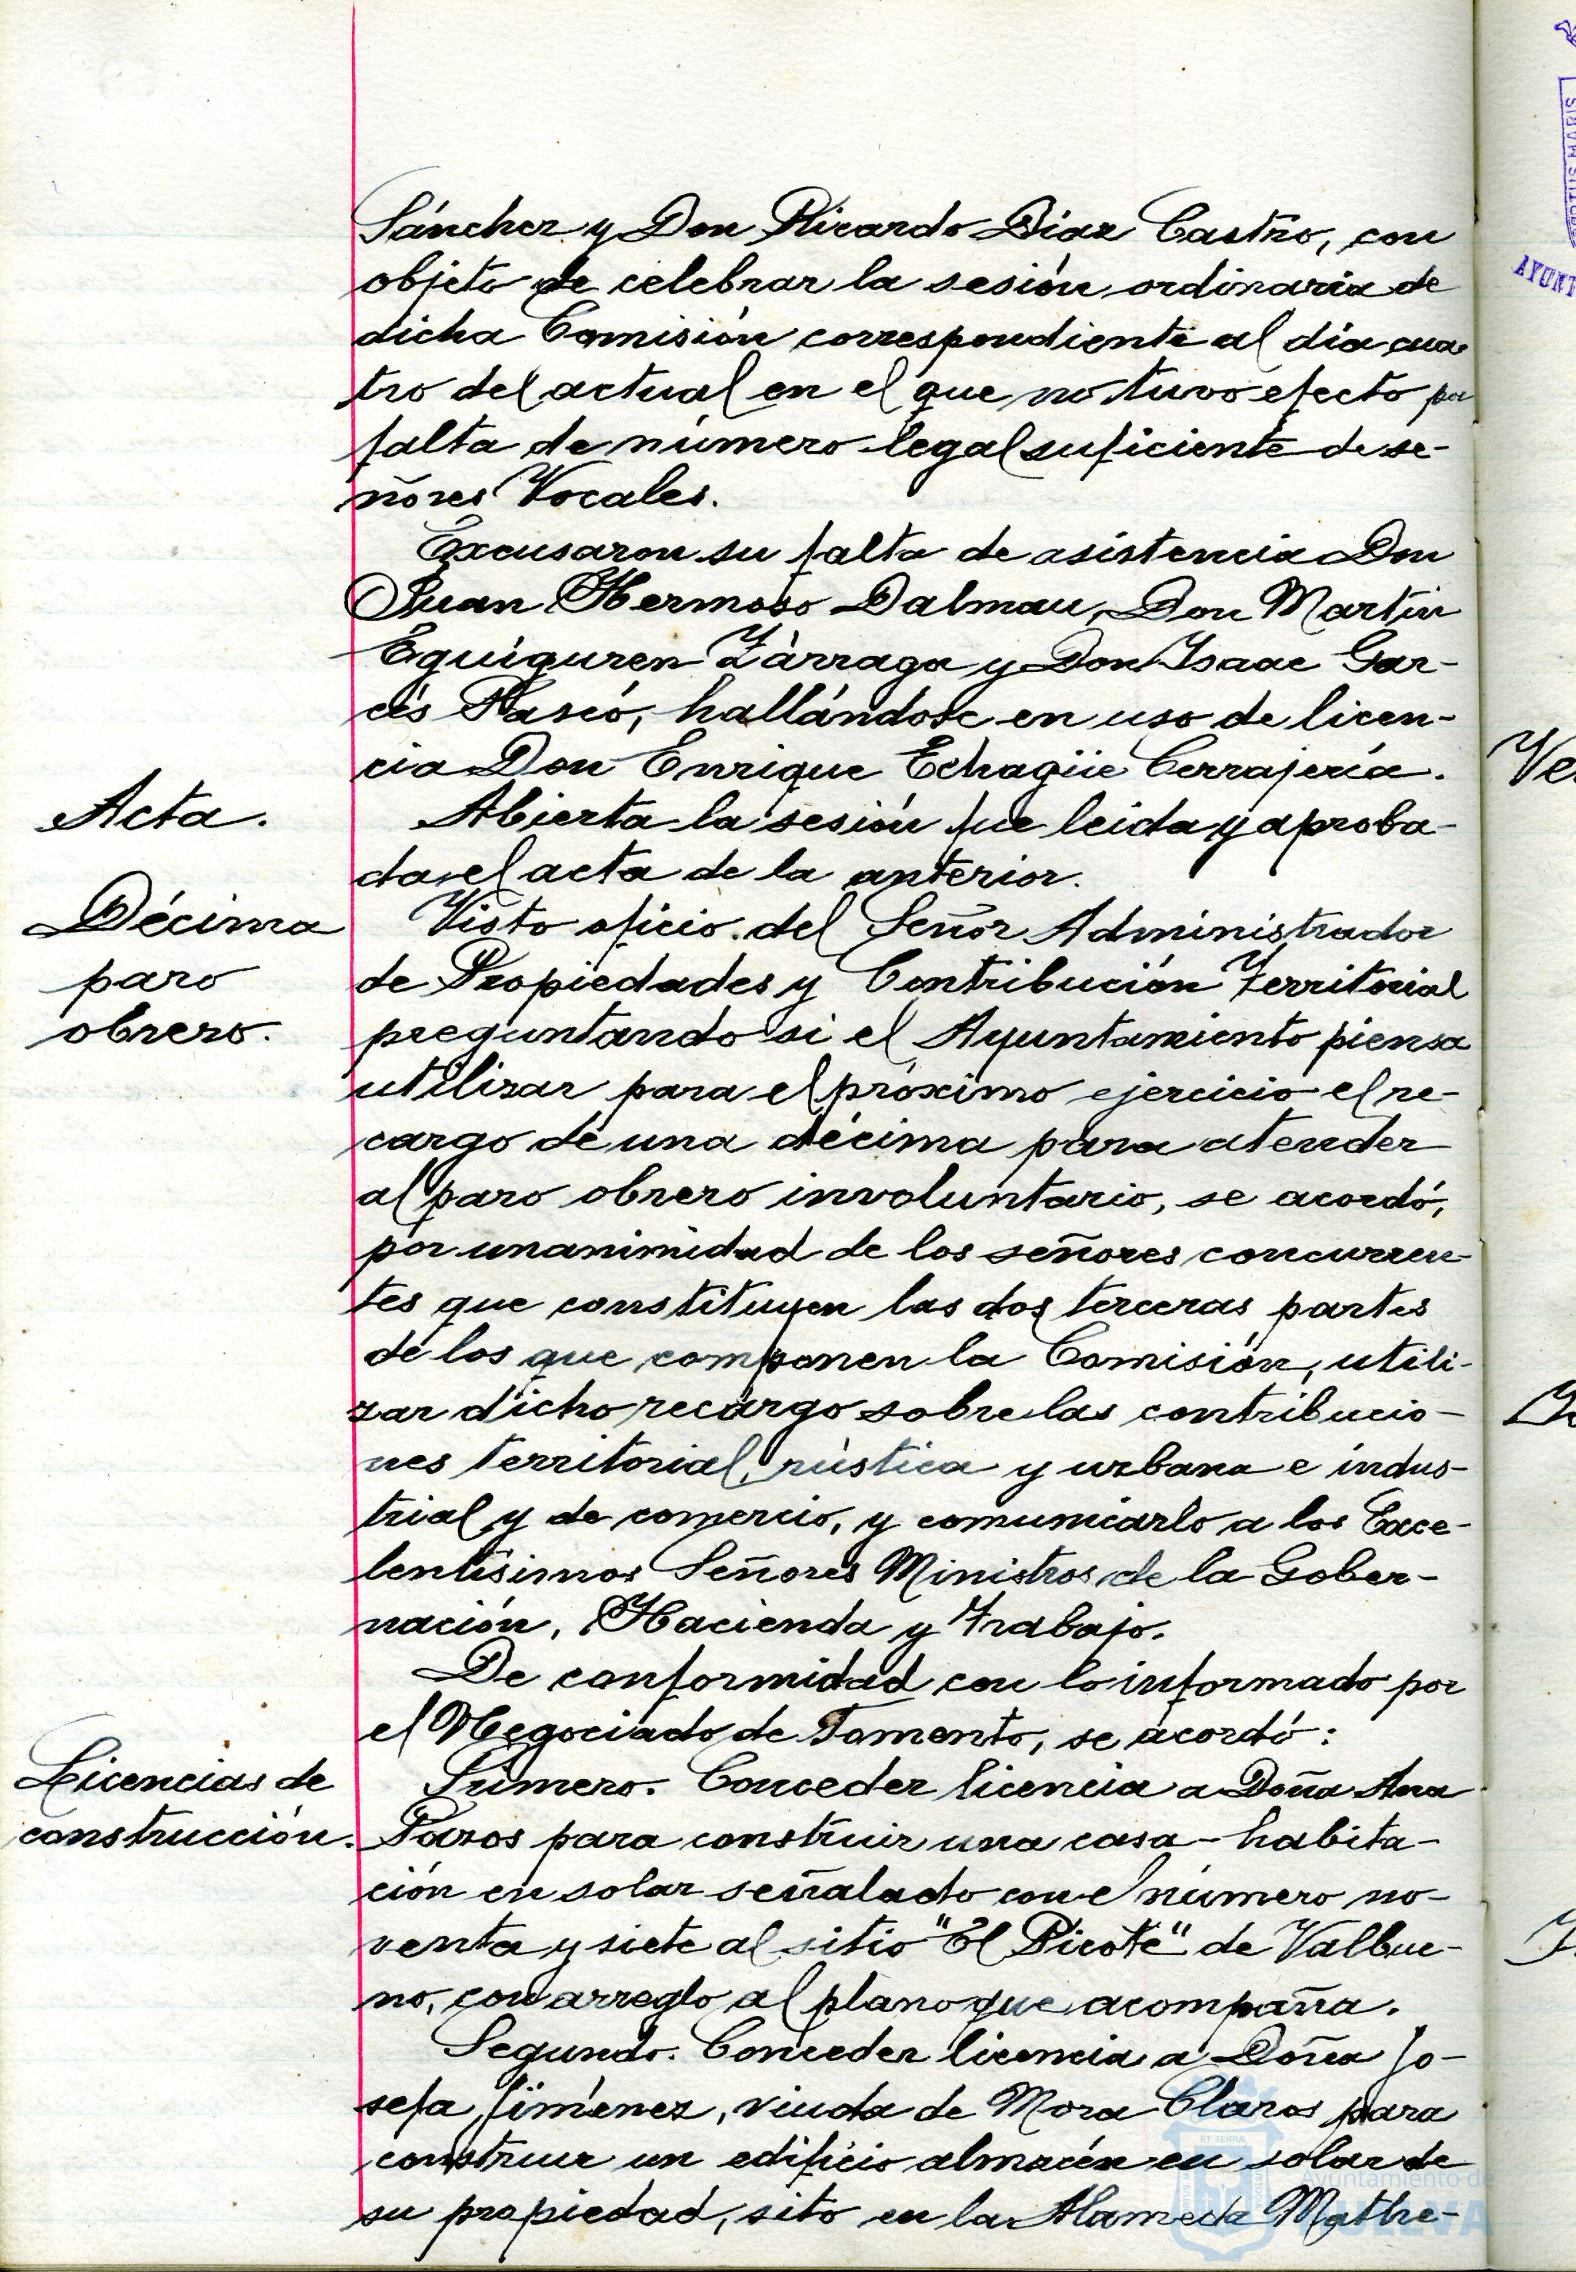 Sánchez y Don Ricardo Díaz Castro, con
objeto de celebrar la sesión ordinaria de
dicha Comisión correspondiente al día cua
tro del actual en el que no tuvo efecto por
falta de número legal suficiente de se-
ñores Vocales.
Excusaron su falta de asistencia Don
Juan Hermoso Dalmau, Don Martín
Eguiguren Zárraga y Don Isaac Gar-
cés Rascó, hallándose en uso de licen-
cia Don Enrique Echagüe Cerrajería.
Acta.
Abierta la sesión fue leida y aproba-
da el acta de la anterior.
Décima
paro
obrero.
Visto oficio del Señor Administrador
de Propiedades y Contribución Territorial
preguntando si el Ayuntamiento piensa
utilizar para el próximo ejercicio el re-
cargo de una décima para atender
al paro obrero involuntario, se acordó,
por unanimidad de los señores concurren-
tes que constituyen las dos terceras partes
de los que componen la Comisión, utili-
zar dicho recargo sobre las contribucio-
nes territorial, rústica y urbana e indus-
trial y de comercio, y comunicarlo a los Exce-
lentísimos Señores Ministros de la Gober-
nación, Hacienda y Trabajo.
De conformidad con lo informado por
el Negociado de Fomento, se acordó:
Licencias de
construcción.
Primero. Conceder licencia a Doña Ana
Pazos para construir una casa-habita-
ción en solar señalado con el número no-
venta y siete al sitio "El Picote" de Valbue-
no, con arreglo al plano que acompaña.
Segundo. Conceder licencia a Doña Jo-
sefa Jiménez, viuda de Mora Claros para
construir un edificio almacén en solar de
su propiedad, sito en la Alameda Mathe-
Ayuntamiento de
HUELVA
ET TERRA
AYUNT
Ve